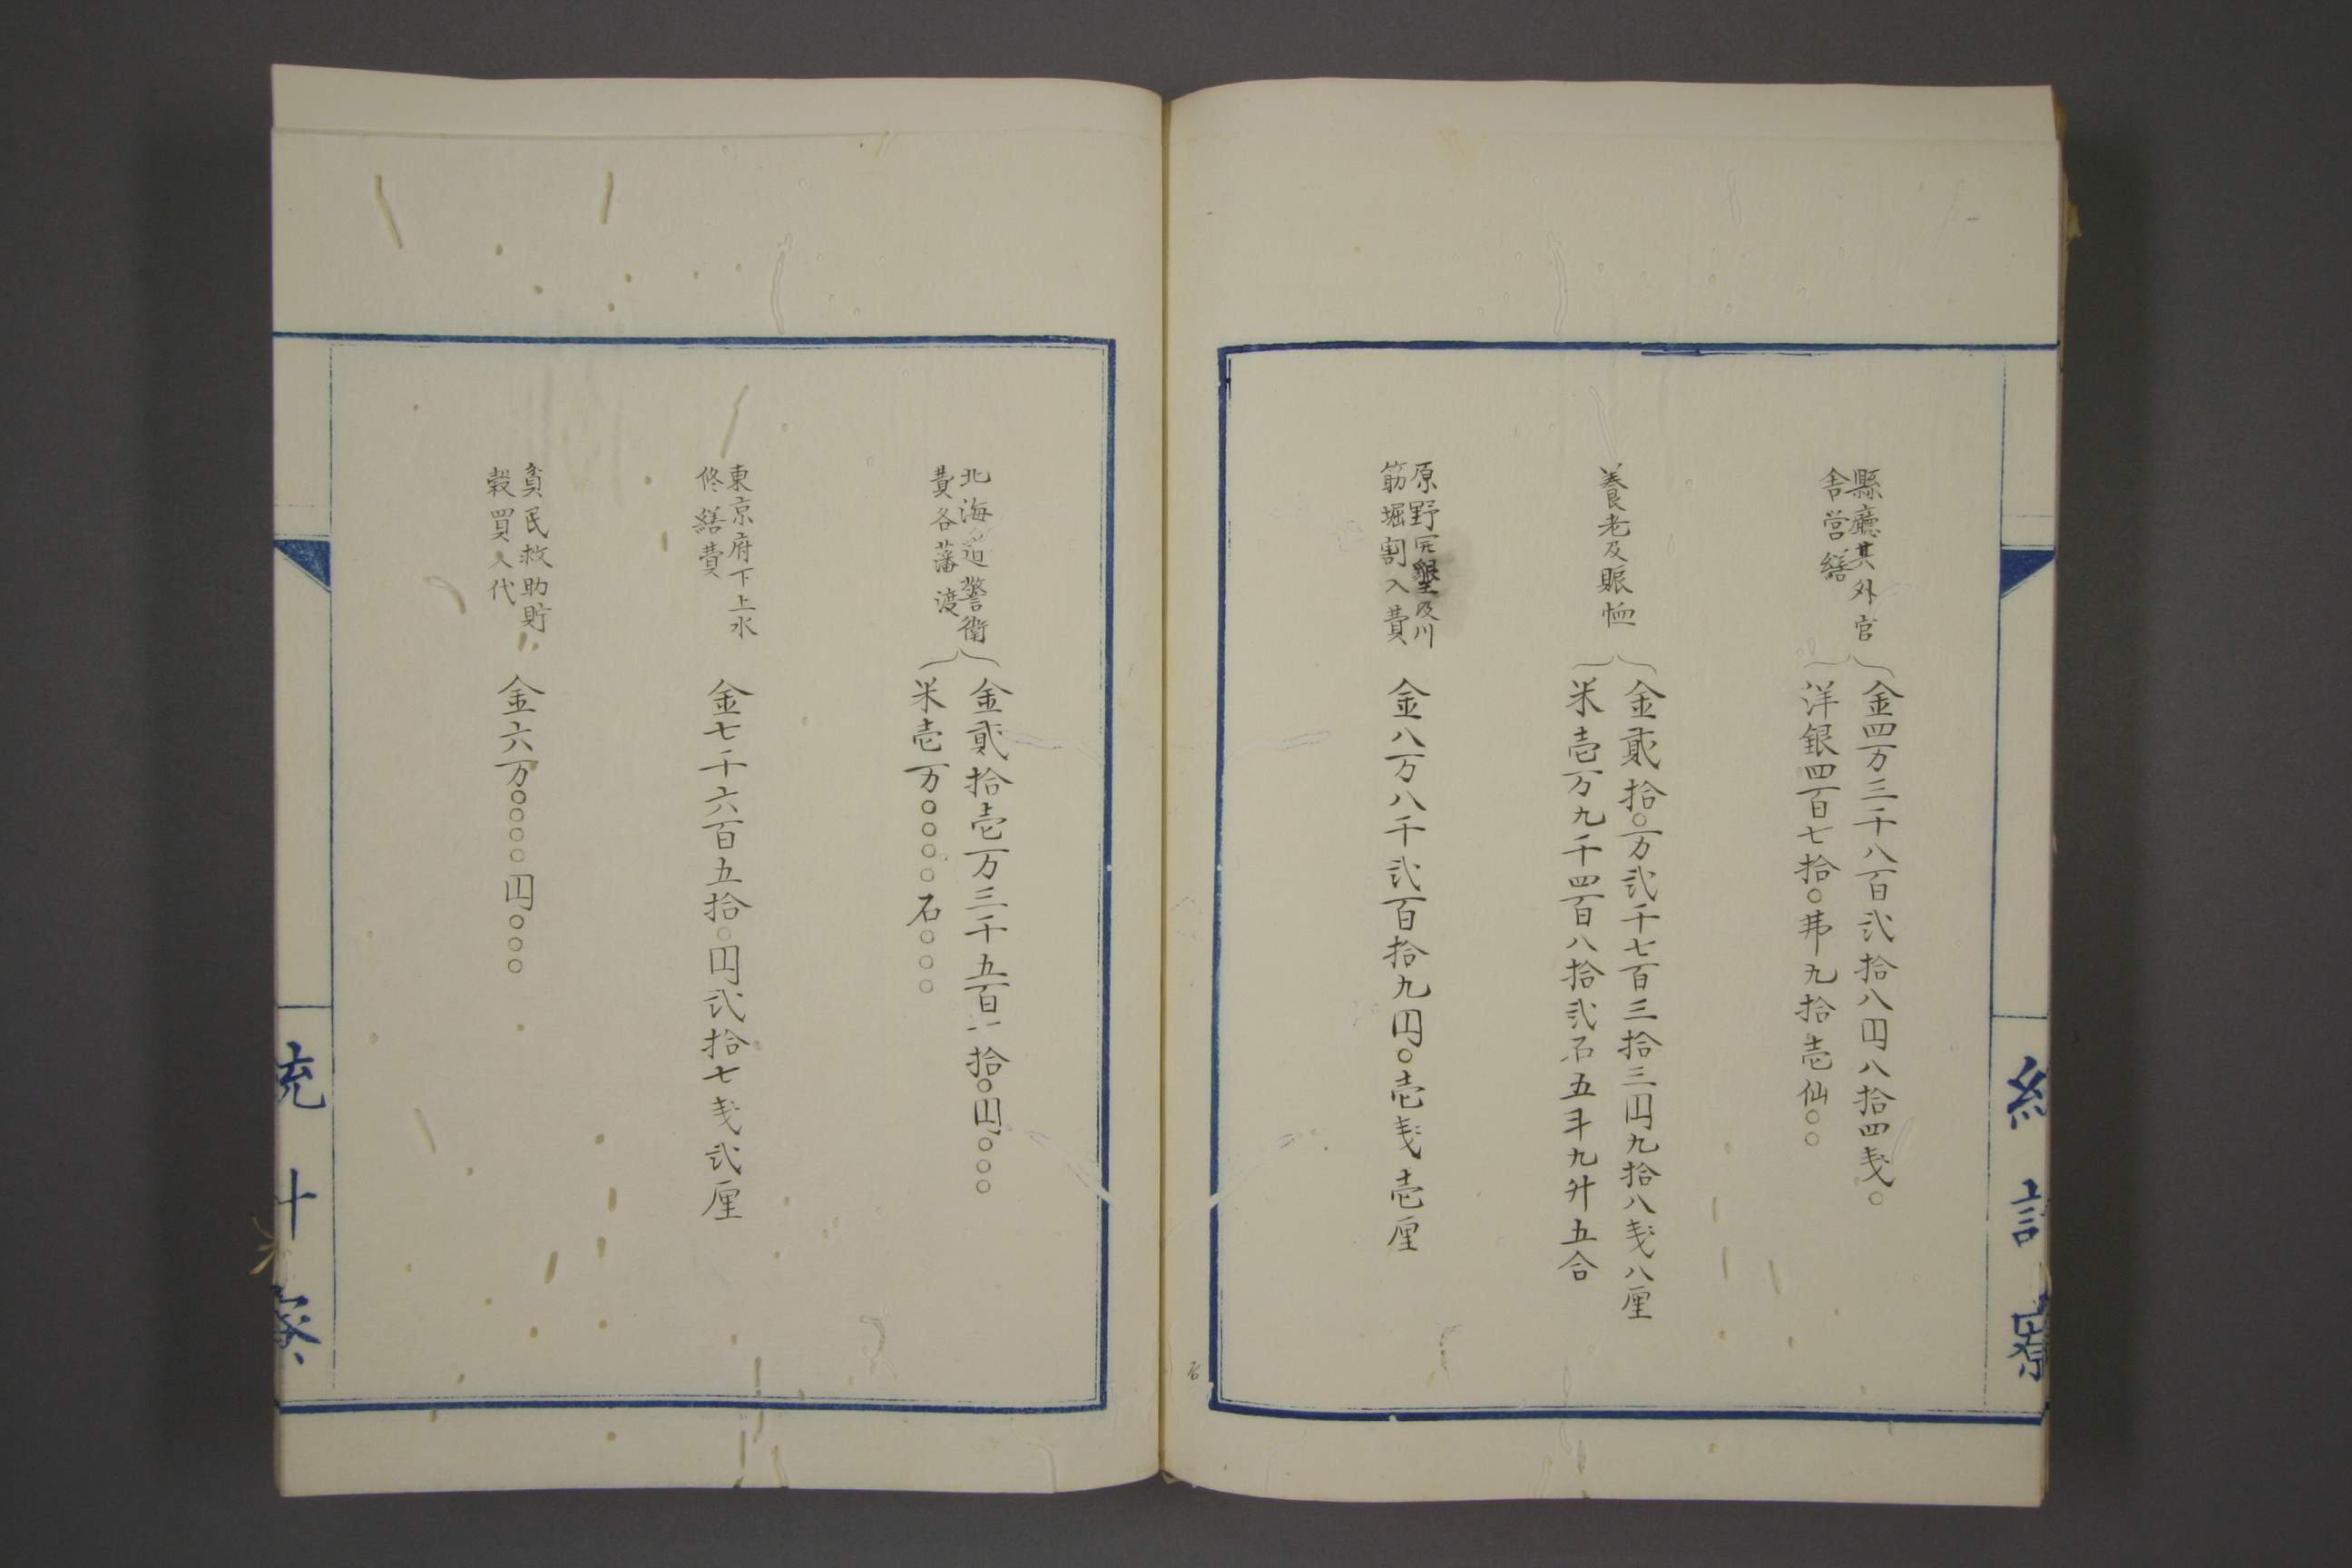 縣廳其外官
舎営繕
金四万三千八百弐拾八円八拾四戔〇
洋銀四百七拾〇弗九拾壱仙〇〇
養老及賑恤
金貳拾〇万弐千七百三拾三円九拾八戔八厘
米壱万九千四百八拾弐石五斗九升五合
原野開墾及川
筋堀割入費
金八万八千弐百拾九円〇壱戔壱厘
北海道警衛
費各藩渡
金貳拾壱万三千五百八拾〇円〇〇〇
米壱万〇〇〇〇石〇〇〇
東京府下上水
修繕費
金七千六百五拾〇円弐拾七戔弐厘
貧民救助貯
穀買入代
金六万〇〇〇〇円〇〇〇